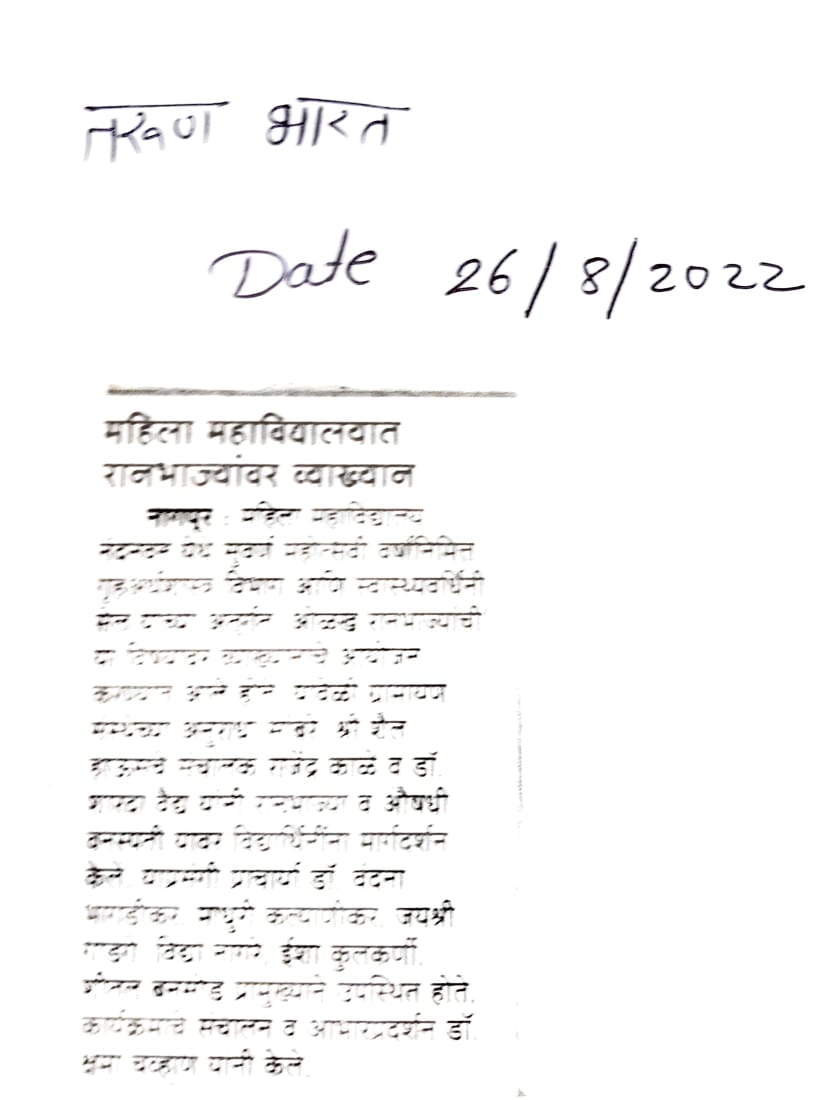 तरुण भारत
Date 26/8/2022
महिला महाविद्यालयात
रानभाज्यांवर व्याख्यान
नागपूर : महिला महाविद्यालय
नंदनवन येथे सुवर्ण महोत्सवी वर्षानिमित्त
गृहअर्थशास्त्र विभाग आणि स्वास्थ्यवर्धिनी
सेल यांच्या अंतर्गत ओळख रानभाज्यांची
या विषयावर व्याख्यानाचे आयोजन
करण्यात आले होते. यावेळी ग्रामायण
संस्थेच्या अनुराधा सांबरे श्री शैल
हाऊसचे संचालक राजेंद्र काळे व डॉ.
शारदा वैद्य यांनी रानभाज्या व औषधी
वनस्पती यावर विद्यार्थिनींना मार्गदर्शन
केले. याप्रसंगी प्राचार्या डॉ. वंदना
भागडीकर, माधुरी कल्याणीकर, जयश्री
विद्या नागरे, ईशा कुलकर्णी,
शीतल बनसोड प्रामुख्याने उपस्थित होते.
कार्यक्रमाचे संचालन व आभारप्रदर्शन डॉ.
क्षमा चव्हाण यांनी केले.